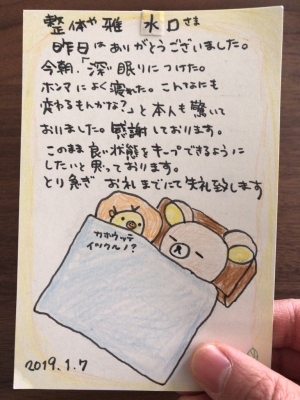 整体や 雅 水口さま
昨日はありがとうございました。
今朝、「深い眠りにつけた。
ホンマによく寝れた。こんなにも
変わるもんかな?」と本人も驚いて
おりました。感謝しております。
このまま良い状態をキープできるように
したいと思っております。
とり急ぎ お礼までにて失礼致します
カホウッテ
イツクルノ?
2019.1.7